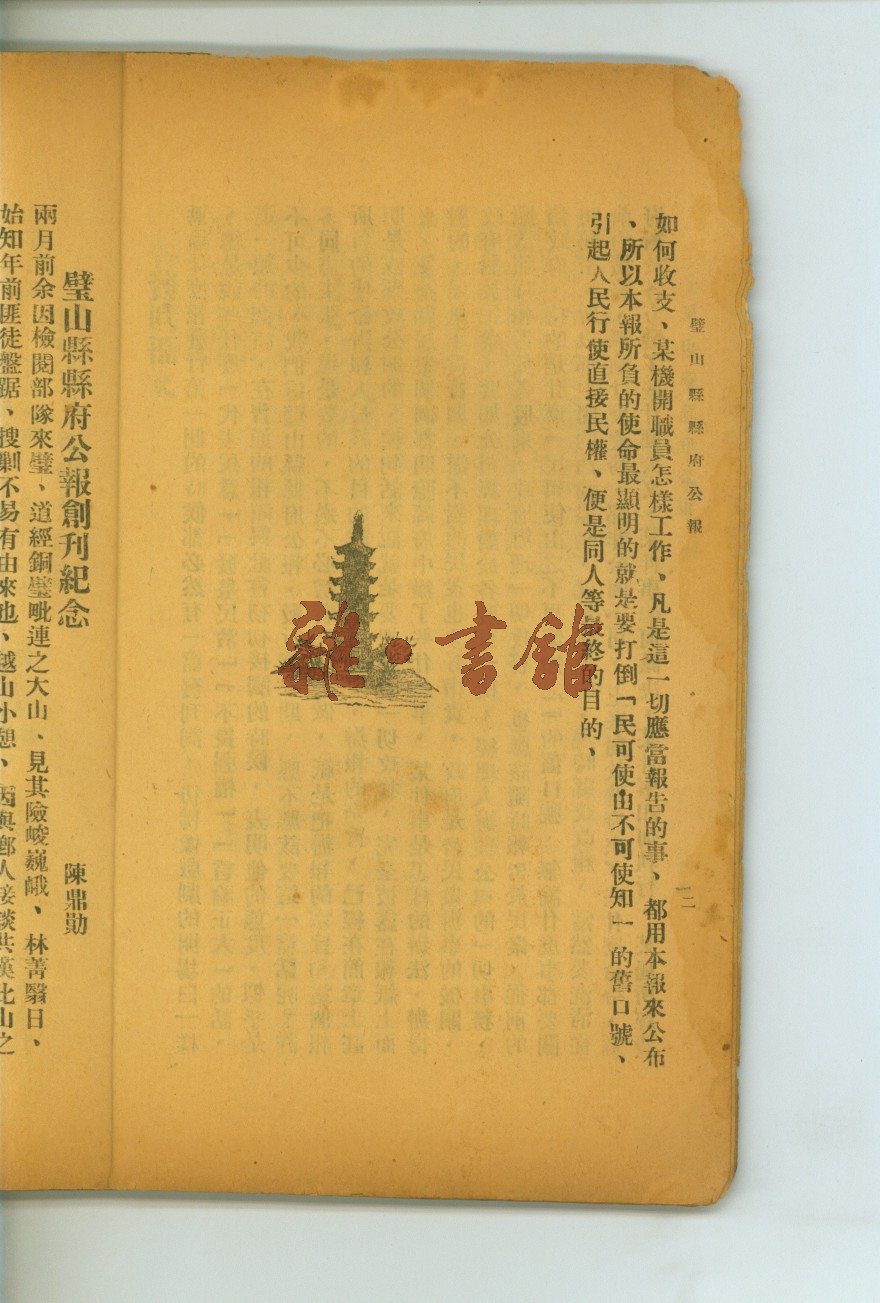 璧山縣縣府公報
二
如何收支、某機開職員怎樣工作、凡是這一切應當報告的事、都用本報來公布
、所以本報所負的使命最顯明的就是要打倒「民可使由不可使知」的舊口號、
引起人民行使直接民權、便是同人等最終的目的、
雜·書館
璧山縣縣府公報創刊紀念
陳鼎勛
兩月前余因檢閱部隊來璧、道經銅璧毗連之大山、見其險峻巍峨、林菁翳日、
始知年前匪徒盤踞、搜剿不易有由來也、越山小憩、因與鄉人接談共漢此山之